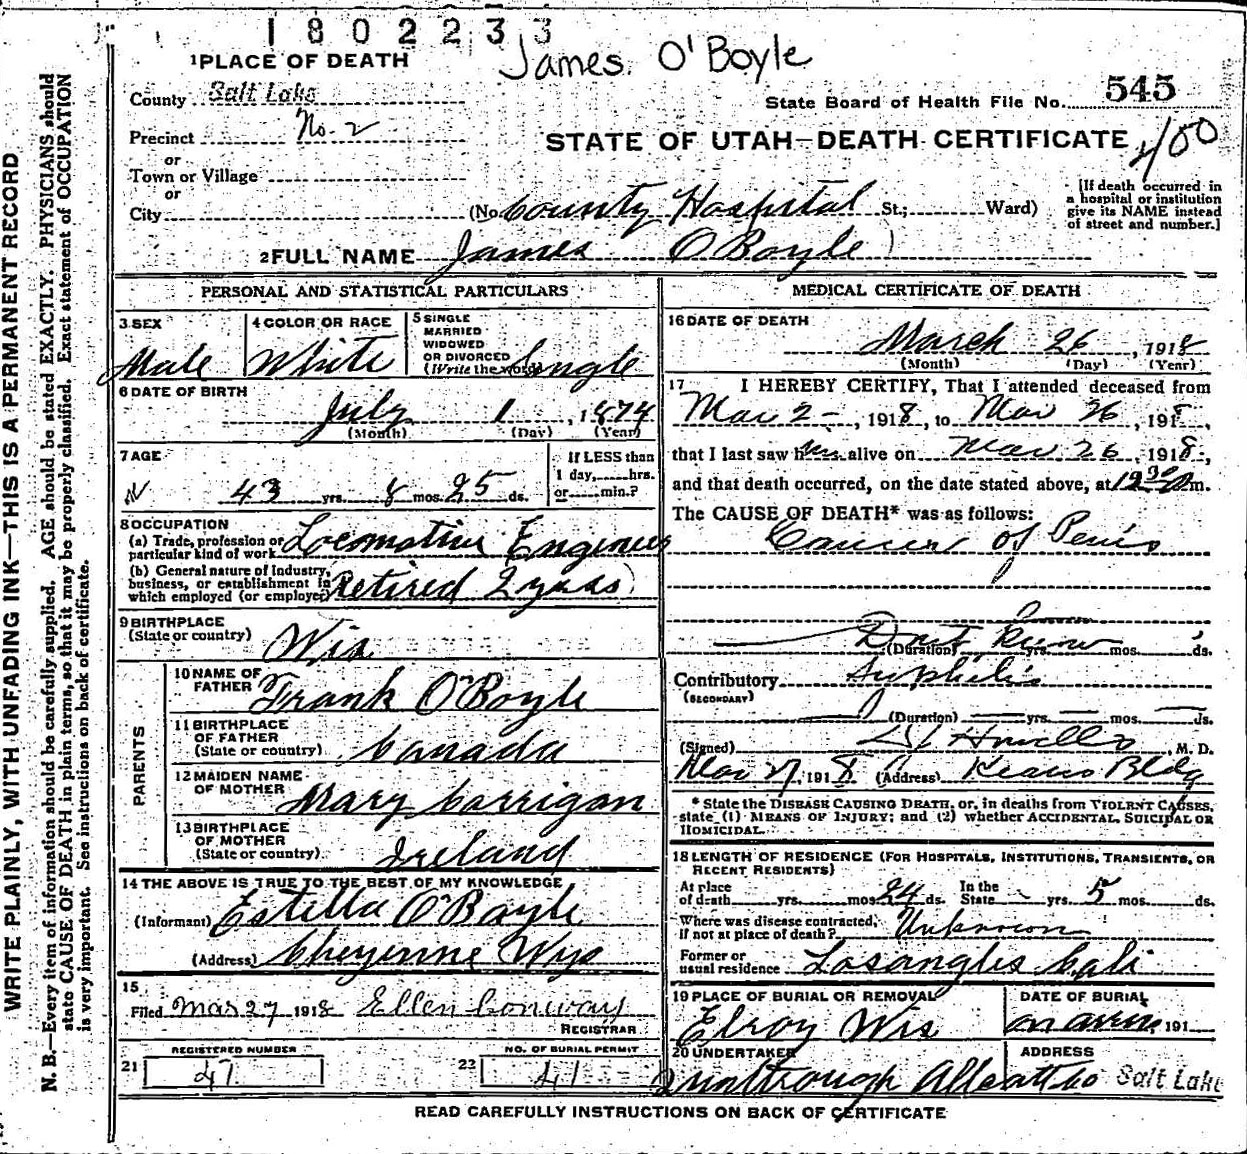 180233
James O'Boyle
1 PLACE OF DEATH
County Salt Lake
State Board of Health File No. 545
Precinct No. 2
STATE OF UTAH—DEATH CERTIFICATE
400
or
Town or Village
or
City (No County Hospital St.; Ward)
[If death occurred in
a hospital or institution
give its NAME instead
of street and number.]
2 FULL NAME James O'Boyle
PERSONAL AND STATISTICAL PARTICULARS
3 SEX Male
4 COLOR OR RACE White
5 SINGLE
MARRIED
WIDOWED
OR DIVORCED
(Write the word) Single
6 DATE OF BIRTH
July 1, 1874
(Month) (Day) (Year)
7 AGE
43 yrs. 8 mos. 25 ds.
If LESS than
1 day, hrs.
or min.?
8 OCCUPATION
(a) Trade, profession or
particular kind of work Locomotive Engineer
(b) General nature of Industry,
business, or establishment in
which employed (or employer) Retired 2 years
9 BIRTHPLACE
(State or country) Wis
PARENTS
10 NAME OF
FATHER Frank O'Boyle
11 BIRTHPLACE
OF FATHER
(State or country) Canada
12 MAIDEN NAME
OF MOTHER Mary Corrigan
13 BIRTHPLACE
OF MOTHER
(State or country) Ireland
14 THE ABOVE IS TRUE TO THE BEST OF MY KNOWLEDGE
(Informant) Estella O'Boyle
(Address) Cheyenne Wyo
15
Filed Mar 27 1918 Ellen Conway
REGISTRAR
21 REGISTERED NUMBER 47
22 NO. OF BURIAL PERMIT 41
MEDICAL CERTIFICATE OF DEATH
16 DATE OF DEATH
March 26, 1918
(Month) (Day) (Year)
17 I HEREBY CERTIFY, That I attended deceased from
Mar 2-, 1918, to Mar 26, 1918,
that I last saw him alive on Mar 26, 1918,
and that death occurred, on the date stated above, at 12 30 P m.
The CAUSE OF DEATH* was as follows:
Cancer of Penis
Dont Know
(Duration) yrs. mos. ds.
Contributory Syphilis
(SECONDARY)
(Duration) yrs. mos. ds.
(Signed) M. D.
Mar 27, 1918 (Address) Kearns Bldg
* State the DISEASE CAUSING DEATH, or, in deaths from VIOLENT CAUSES,
state (1) MEANS OF INJURY; and (2) whether ACCIDENTAL, SUICIDAL OR
HOMICIDAL.
18 LENGTH OF RESIDENCE (FOR HOSPITALS, INSTITUTIONS, TRANSIENTS, OR
RECENT RESIDENTS)
At place
of death yrs. mos. 24 ds.
In the
State yrs. 5 mos. ds.
Where was disease contracted,
if not at place of death? Unknown
Former or
usual residence Losangles Cali
19 PLACE OF BURIAL OR REMOVAL
Elroy Wis
DATE OF BURIAL
on arrival 191
20 UNDERTAKER
ADDRESS
Salt Lake
READ CAREFULLY INSTRUCTIONS ON BACK OF CERTIFICATE
WRITE PLAINLY, WITH UNFADING INK—THIS IS A PERMANENT RECORD
N. B.—Every item of information should be carefully supplied. AGE should be stated EXACTLY. PHYSICIANS should
state CAUSE OF DEATH in plain terms, so that it may be properly classified. Exact statement of OCCUPATION
is very important. See instructions on back of certificate.